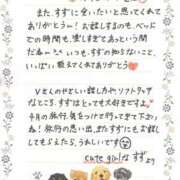 また、すずに会いたいと思ってくれて
ありがとうー! お話しするのも、ベッド
での時間も、楽しすぎてあっという間
だね〜 いつも、すずの知らないこと、
いっぱい教えてくれてありがとう
Vさんのやさしい話し方やソフトタッチ
なところ、すずはとっても大好きですよ。
4月の旅行、気をつけて行って下さい
ね! 旅行の思い出、またすずにもお話
ししてもらえたら、うれしいです
cute girl なすずより